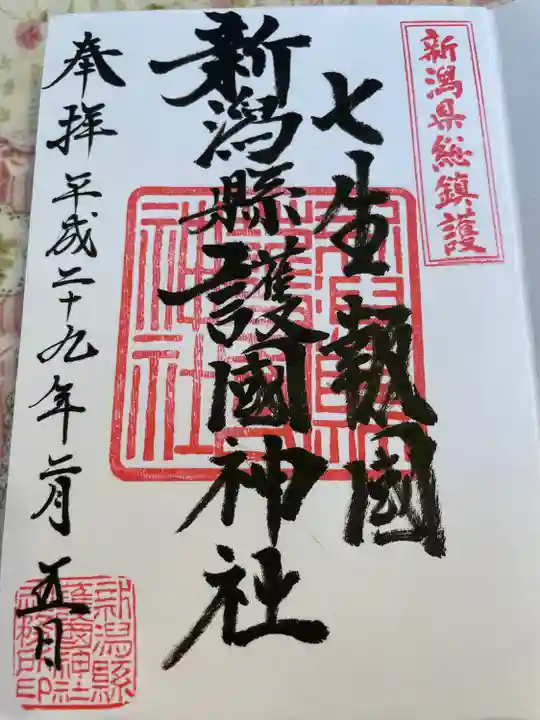 新潟県総鎮護
七生報國
新潟縣護國神社
奉拝 平成二十九年二月五日
新潟縣
護國神社
社務所印